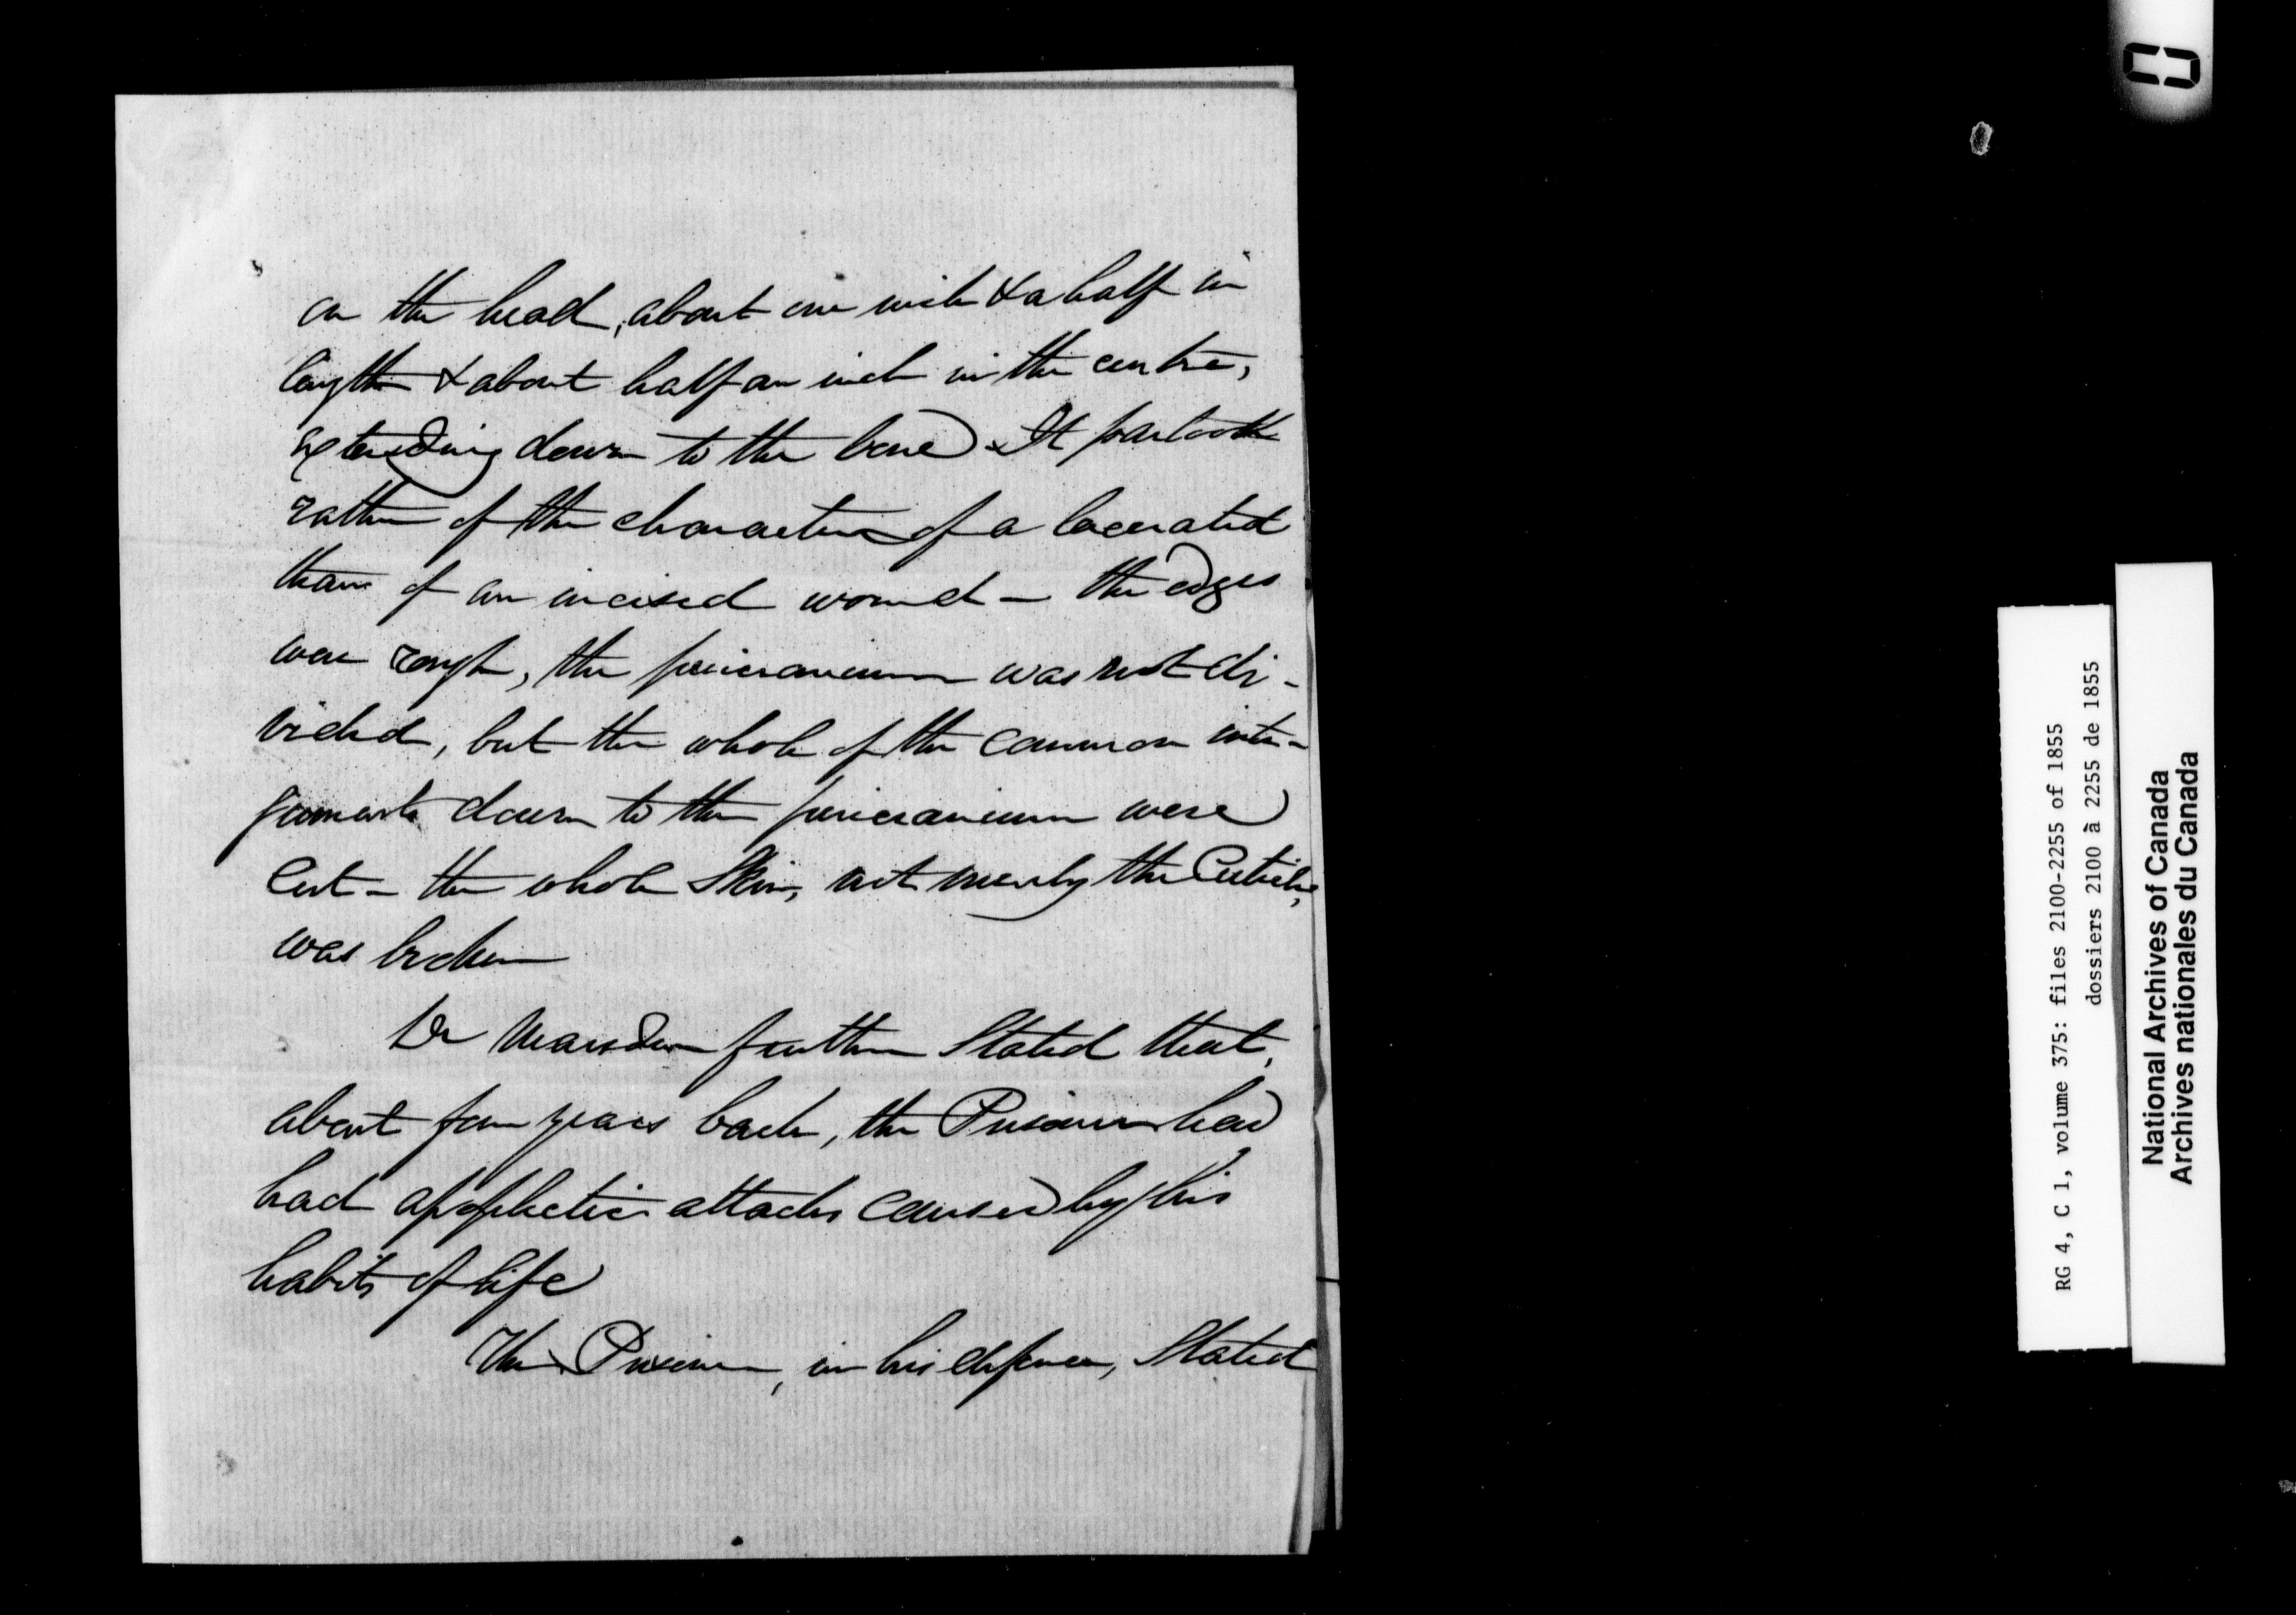 on the head, about one inch & a half in
length & about half an inch in the centre,
extending down to the bone. It partook
rather of the character of a lacerated
than of an incised wound — the edges
were rough, the pericranium was not di-
vided, but the whole of the common inte-
guments down to the pericranium were
cut — the whole skin, not merely the Cuticle,
was broken
Dr Marsden further Stated that,
about four years back, the Prisoner had
had apoplectic attacks caused by his
habits of life
The Prisoner, in his defence, Stated
RG 4, C 1, volume 375: files 2100-2255 of 1855
dossiers 2100 à 2255 de 1855
National Archives of Canada
Archives nationales du Canada